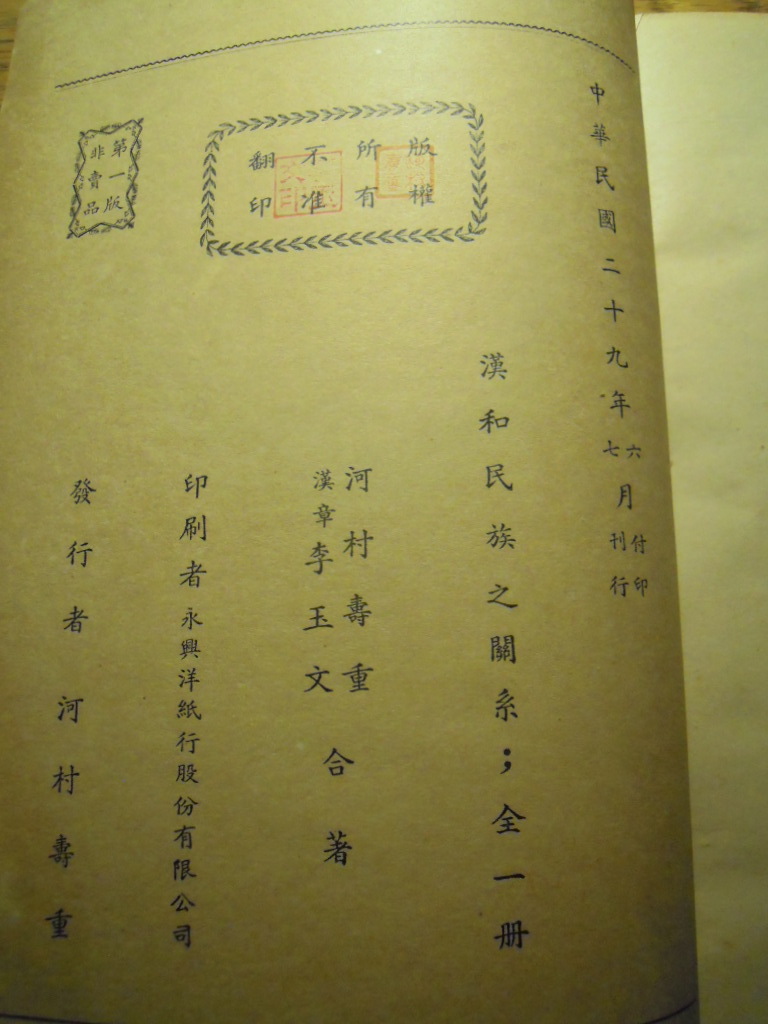 中華民國二十九年六七月付印刊行
版權所有
不准翻印
第一版
非賣品
漢和民族之關系；全一册
河村壽重
漢章李玉文
合著
印刷者永興洋紙行股份有限公司
發行者河村壽重